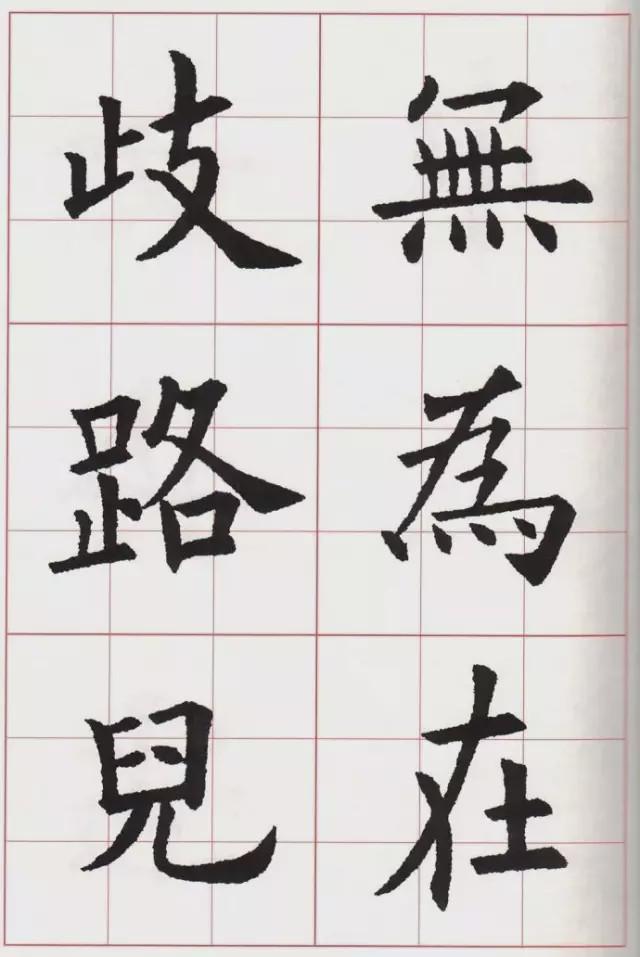 無為在
歧路兒